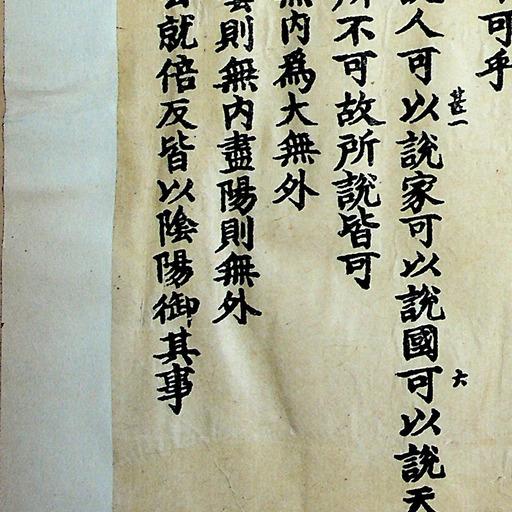 可乎
人可以說家可以說國可以說天
甚一
大
所不可故所說皆可
無內爲大無外
則無內盡陽則無外
就倍反皆以陰陽御其事